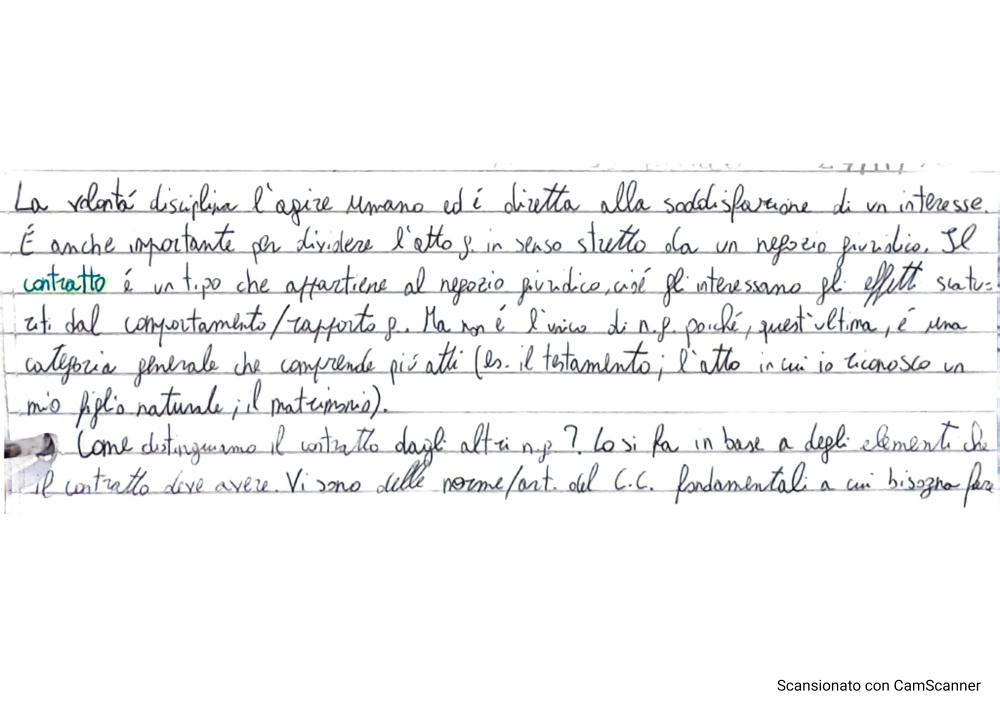 La volontá disciplina l'agire umano ed é diretta alla soddisfazione di un interesse.
É anche importante per dividere l'atto g. in senso stretto da un negozio giuridico. Il
contratto é un tipo che appartiene al negozio giuridico, cioé gli interessano gli effetti scatu=
riti dal comportamento/rapporto g. Ma non é l'unico di n.g. poiché, quest'ultima, é una
categoria generale che comprende piú atti (es. il testamento; l'atto in cui io riconosco un
mio figlio naturale; il matrimonio).
Come distinguiamo il contratto dagli altri n.g? Lo si fa in base a degli elementi che
il contratto deve avere. Vi sono delle norme/art. del C.C. fondamentali a cui bisogna fare
Scansionato con CamScanner